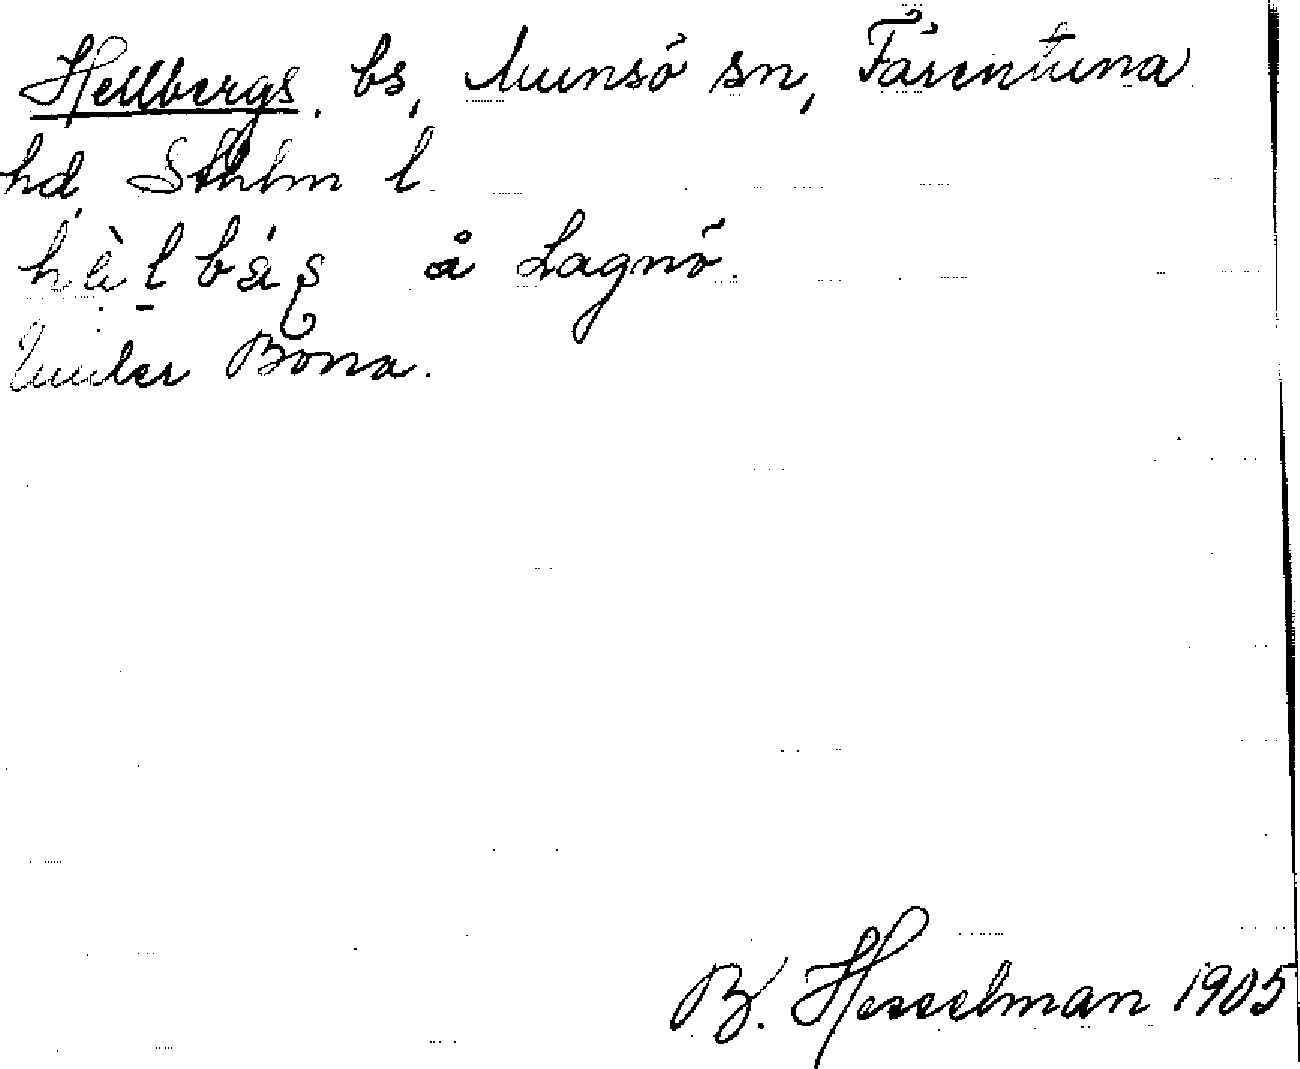 Hellbergs, bs, Munsö sn, Färentuna
hd, Sthlm l.
å Lagnö.
Under Bona.
B. Hesselman 1905